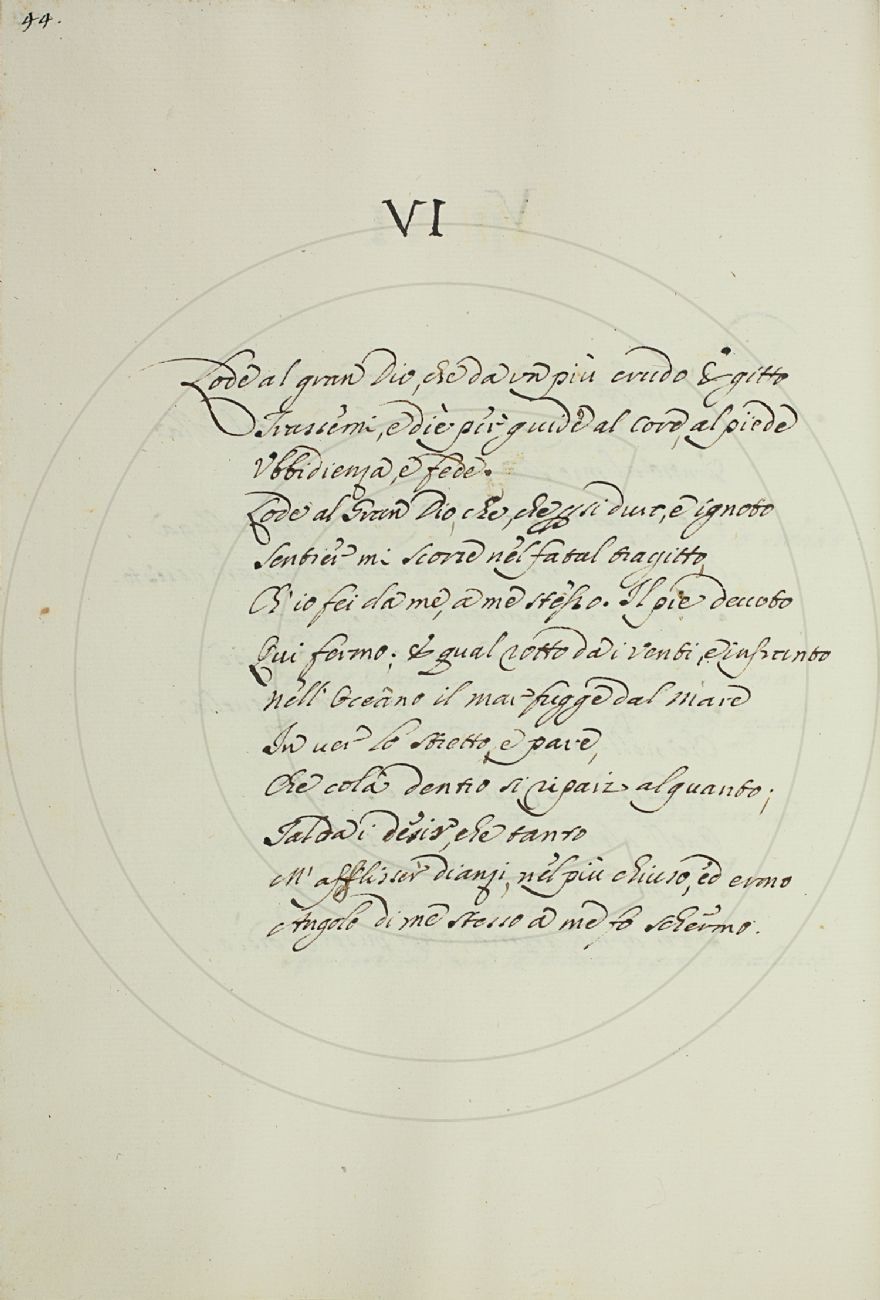 44.
VI
Lode al gran Dio, che da un più crudo Egitto
Trassemi, e diè per guide al core, al piede
Ubbidienza, e fede.
Lode al Gran Dio, che, che si duro, e ignoto
Sentier mi scorse nel fatal tragitto,
Ch'io fei da me, a me stesso. Il piè devoto
Qui fermo; E qual rotto da i venti, e infranto
Nell'Oceàno il mar fugge dal Mare
In ver lo stretto, e pare,
Che colà dentro si ripari alquanto;
Tal da i desir, che tanto
M'afflisser dianzi, nel più chiuso, ed ermo
Angolo di me stesso a me fo schermo.